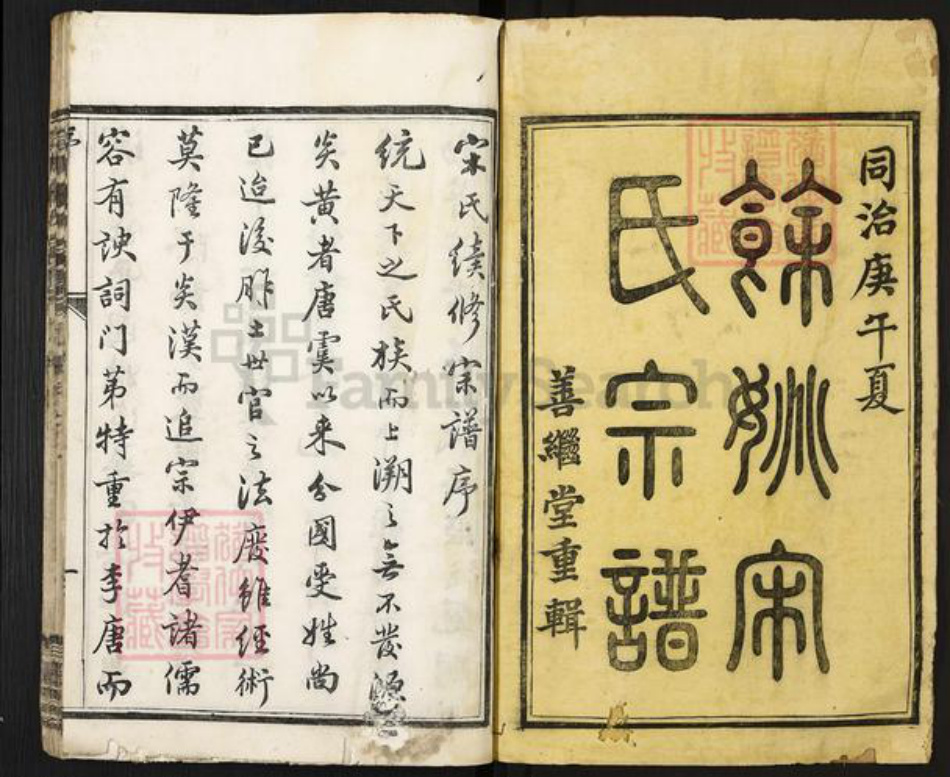 同治庚午夏
餘姚宋
氏宗譜
善繼堂重輯
宋氏續修宗譜序
統天下之氏族而上溯之無不發源
炎黃者唐虞以来分國受姓尚
已迨後胙土世官之法廢雖經術
莫隆于炎漢而追宗伊耆諸儒
容有諛詞门第特重於李唐而
一
FamilySearch